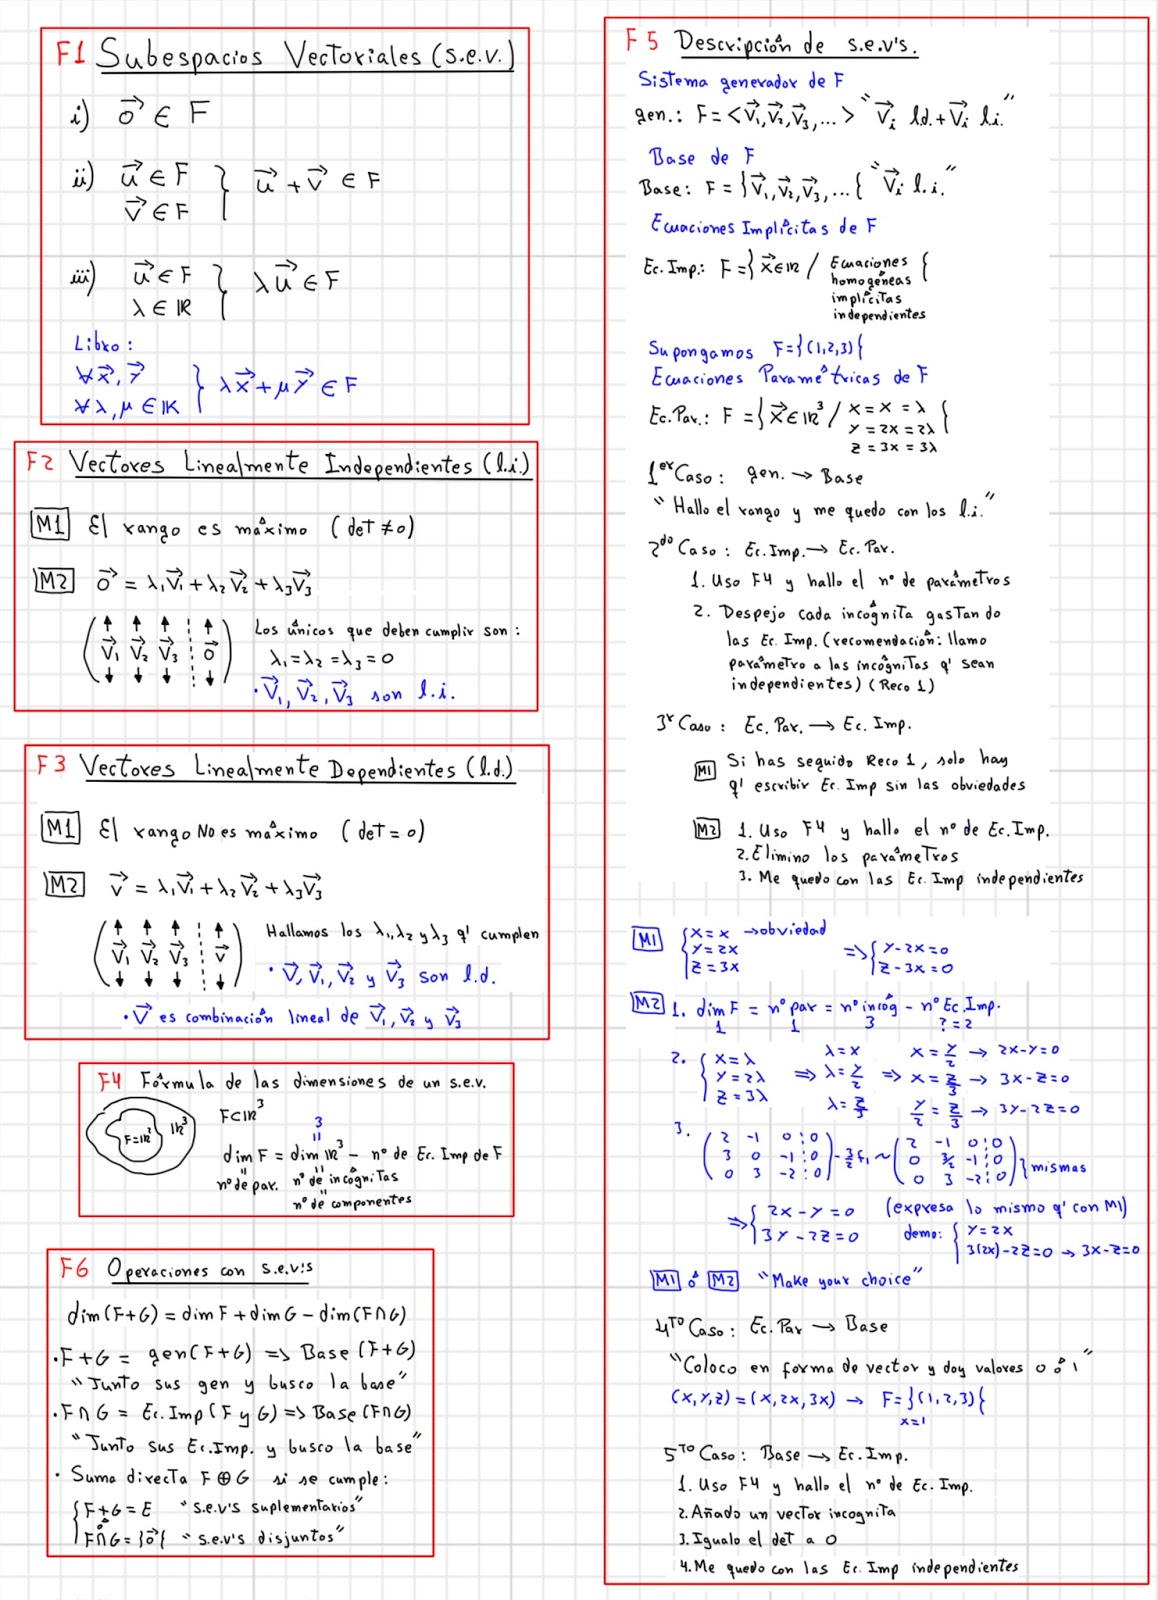 F1 Subespacios Vectoriales (s.e.v.)
i) 0⃗ ∈ F
ii) u⃗ ∈ F
v⃗ ∈ F } u⃗ + v⃗ ∈ F
iii) u⃗ ∈ F
λ ∈ ℝ } λu⃗ ∈ F
Libro:
∀x⃗, y⃗
∀λ, μ ∈ 𝕂 } λx⃗ + μy⃗ ∈ F
F2 Vectores Linealmente Independientes (l.i.)
M1 El rango es máximo (det ≠ 0)
M2 0⃗ = λ₁V⃗₁ + λ₂V⃗₂ + λ₃V⃗₃
( V⃗₁ V⃗₂ V⃗₃ ¦ 0⃗ )
Los únicos que deben cumplir son:
λ₁ = λ₂ = λ₃ = 0
· V⃗₁, V⃗₂, V⃗₃ son l.i.
F3 Vectores Linealmente Dependientes (l.d.)
M1 El rango NO es máximo (det = 0)
M2 v⃗ = λ₁V⃗₁ + λ₂V⃗₂ + λ₃V⃗₃
( V⃗₁ V⃗₂ V⃗₃ ¦ v⃗ )
Hallamos los λ₁, λ₂ y λ₃ q' cumplen
· V⃗, V⃗₁, V⃗₂ y V⃗₃ son l.d.
· V⃗ es combinación lineal de V⃗₁, V⃗₂ y V⃗₃
F4 Fórmula de las dimensiones de un s.e.v.
F=ℝ² ℝ³
F⊂ℝ³
3
"
dim F = dim ℝ³ - nº de Ec. Imp de F
" "
nº de par. nº de incógnitas
"
nº de componentes
F6 Operaciones con s.e.v's
dim(F+G) = dim F + dim G - dim(F∩G)
· F+G = gen(F+G) => Base(F+G)
"Junto sus gen y busco la base"
· F∩G = Ec.Imp(F y G) => Base(F∩G)
"Junto sus Ec.Imp. y busco la base"
· Suma directa F⊕G si se cumple:
{ F+G = E "s.e.v's suplementarios"
ó
F∩G = }0⃗{ "s.e.v's disjuntos"
F5 Descripción de s.e.v's.
Sistema generador de F
gen.: F = <V⃗₁, V⃗₂, V⃗₃, ...> "V⃗ᵢ l.d. + V⃗ᵢ l.i."
Base de F
Base: F = }V⃗₁, V⃗₂, V⃗₃, ...{ "V⃗ᵢ l.i."
Ecuaciones Implícitas de F
Ec. Imp.: F = }x⃗ ∈ ℝ / Ecuaciones {
homogéneas
implícitas
independientes
Supongamos F = }(1,2,3){
Ecuaciones Paramétricas de F
Ec. Par.: F = }x⃗ ∈ ℝ³ / x = x = λ {
y = 2x = 2λ
z = 3x = 3λ
1er Caso: gen. → Base
"Hallo el rango y me quedo con los l.i."
2do Caso: Ec. Imp. → Ec. Par.
1. Uso F4 y hallo el nº de parámetros
2. Despejo cada incógnita gastando
las Ec. Imp. (recomendación: llamo
parámetro a las incógnitas q' sean
independientes) (Reco 1)
3r Caso: Ec. Par. → Ec. Imp.
M1 Si has seguido Reco 1, solo hay
q' escribir Ec. Imp sin las obviedades
M2 1. Uso F4 y hallo el nº de Ec. Imp.
2. Elimino los parámetros
3. Me quedo con las Ec. Imp independientes
M1 { x = x → obviedad
y = 2x
z = 3x
=> { y - 2x = 0
z - 3x = 0
M2 1. dim F = nº par = nº incóg - nº Ec. Imp.
1 1 3 ? = 2
2. { x = λ
y = 2λ
z = 3λ
=> λ = x
λ = y/2
λ = z/3
=> x = y/2 → 2x - y = 0
x = z/3 → 3x - z = 0
y/2 = z/3 → 3y - 2z = 0
3. ( 2 -1 0 ¦ 0
3 0 -1 ¦ 0
0 3 -2 ¦ 0 ) - 3/2 f₁ ~ ( 2 -1 0 ¦ 0
0 3/2 -1 ¦ 0
0 3 -2 ¦ 0 ) } mismas
=> { 2x - y = 0
3y - 2z = 0
(expresa lo mismo q' con M1)
demo: { y = 2x
3(2x) - 2z = 0 → 3x - z = 0
M1 ó M2 "Make your choice"
4TO Caso: Ec. Par → Base
"Coloco en forma de vector y doy valores 0 ó 1"
(x, y, z) = (x, 2x, 3x) → F = }(1,2,3){
x=1
5TO Caso: Base → Ec. Imp.
1. Uso F4 y hallo el nº de Ec. Imp.
2. Añado un vector incognita
3. Igualo el det a 0
4. Me quedo con las Ec. Imp independientes